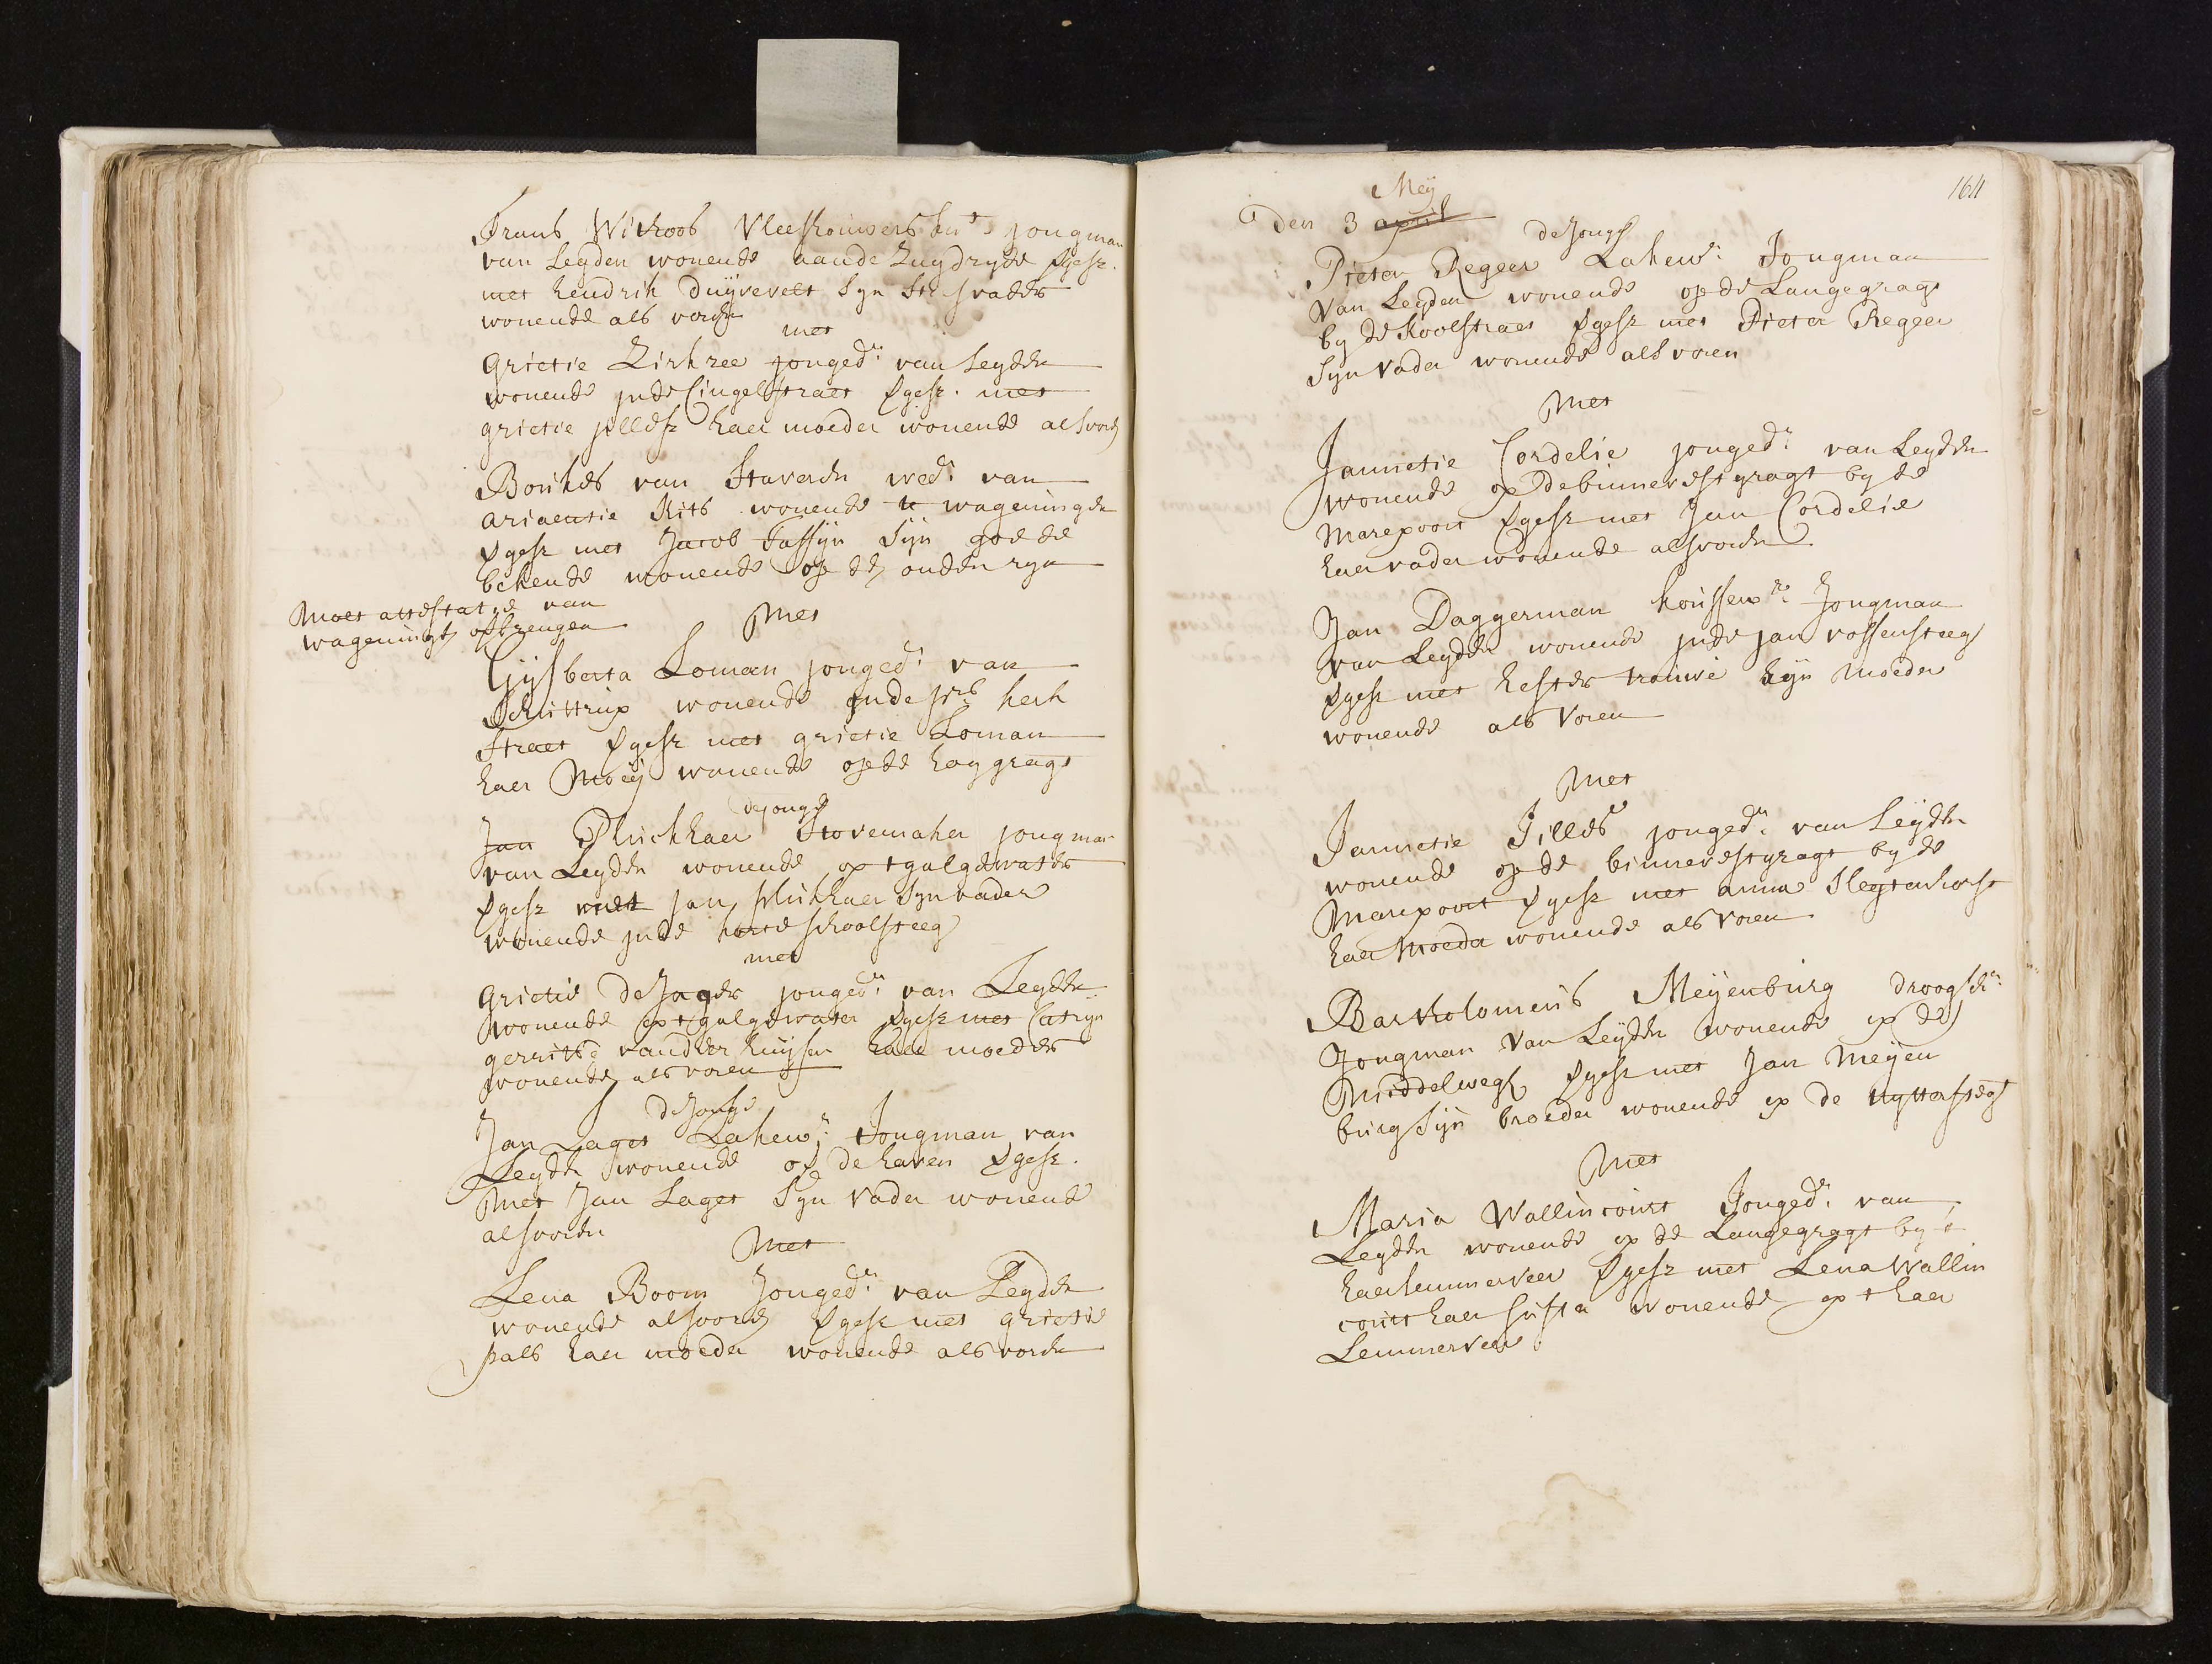 Frans Witroos Vleeshouwers kn^t jongman
van Leyden wonende aande Zuydzyde vgesz.
met hendrik duyverelt Syn Stiefvader
wonende als voren
met
grietie Zirkzee jonged^r: van Leyden
wonende inde Cingelstraet vgesz. met
grietie jillesz haer moeder wonende als voren
Boukes van Staveren wed^r: van
ariaentie kits wonende te wageningen
vgesz met Jacob Taffijn Sijn goede
bekende wonende op den ouden ryn
Moet attestatie van
wageningen opbrengen
Met
Gijsberta Loman jonged^r: van
wonende inde kerk
straet vgesz met grietie Loman
haer Moeij wonende opde hoygragt
de jonge
Jan Pluckhaer Stovemaker jongman
van Leyden wonende op t galgewater
vgesz met jan plukhaer Syn vader
wonende inde korte schoolsteeg
met
grietie de Jager jonged^r: van Leyden
wonende op t galgewater vgesz met Catryn
gerrits vander huysen haer moeder
wonende als voren
de Jonge
Jan Lages Lakew^r: Jongman van
Leyden wonende op de haven vgesz.
Met Jan Lages Syn Vader wonende
als voren
Met
Lena Boom Jonged^r: van Leyden
wonende als voren vgesz met grietie
pals haer moeder wonende als voren
164
Meij
den 3 april
de Jonge
Pieter Regeer Lakew^r: Jongman
Van Leyden wonende op de Langegragt
by de Koolstraet vgesz met Pieter Regeer
Syn Vader wonende als voren
Met
Jannetie Cordelie jonged^r: van Leyden
wonende op de binnevestgragt by de
Marepoort vgesz met Jan Cordelie
haer vader wonende als voren
Jan Daggerman koussew^r: Jongman
van Leyden wonende inde jan vossensteeg
vgesz met hester trouwe Zijn Moeder
wonende als Voren
Met
Jannetie Jilles jonged^r: van Leyden
wonende op de binnevestgragt by de
Marepoort vgesz met anna Slegtenhorst
haer Moeder wonende als voren
Bartholomeus Meijenburg droogsch^r:
Jongman Van Leyden wonende op de
Middelwegh vgesz met Jan Meijen
burg Sijn broeder wonende op de uytterste gt
Met
Maria Wallincourt Jonged^r: van
Leyden wonende op de Langegragt by t
haerlemmerveer vgesz met Lena Wallin
court haer suster wonende op t haer
Lemmerveer